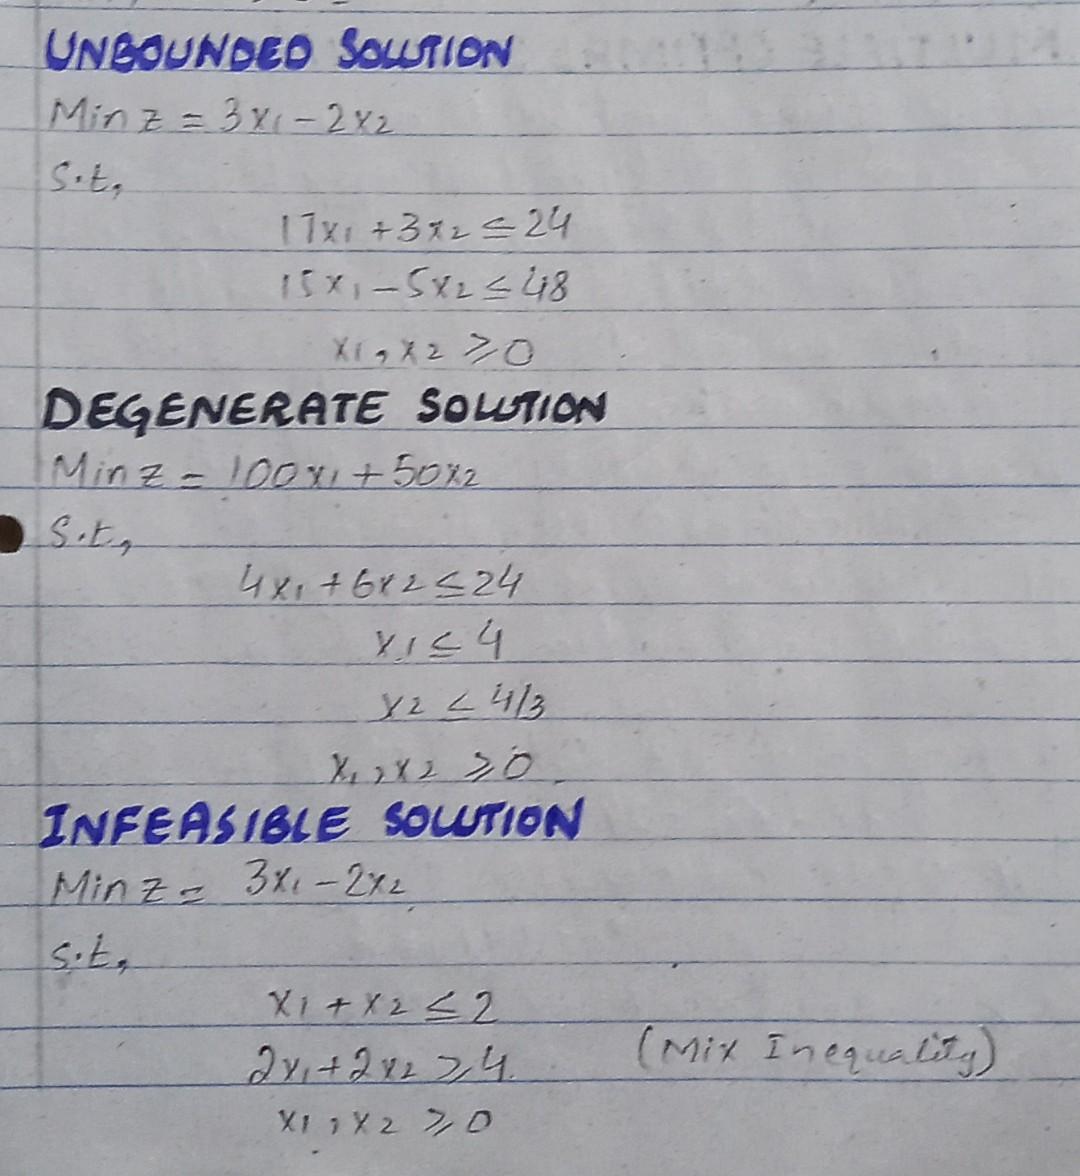 UNBOUNDED SOLUTION
Min z = 3x1 - 2x2
S.t,
17x1 + 3x2 ≤ 24
15x1 - 5x2 ≤ 48
x1, x2 ≥ 0
DEGENERATE SOLUTION
Min z = 100x1 + 50x2
S.t,
4x1 + 6x2 ≤ 24
x1 ≤ 4
x2 ≤ 4/3
x1, x2 ≥ 0
INFEASIBLE SOLUTION
Min z = 3x1 - 2x2
S.t,
x1 + x2 ≤ 2
2x1 + 2x2 ≥ 4 (Mix Inequality)
x1, x2 ≥ 0